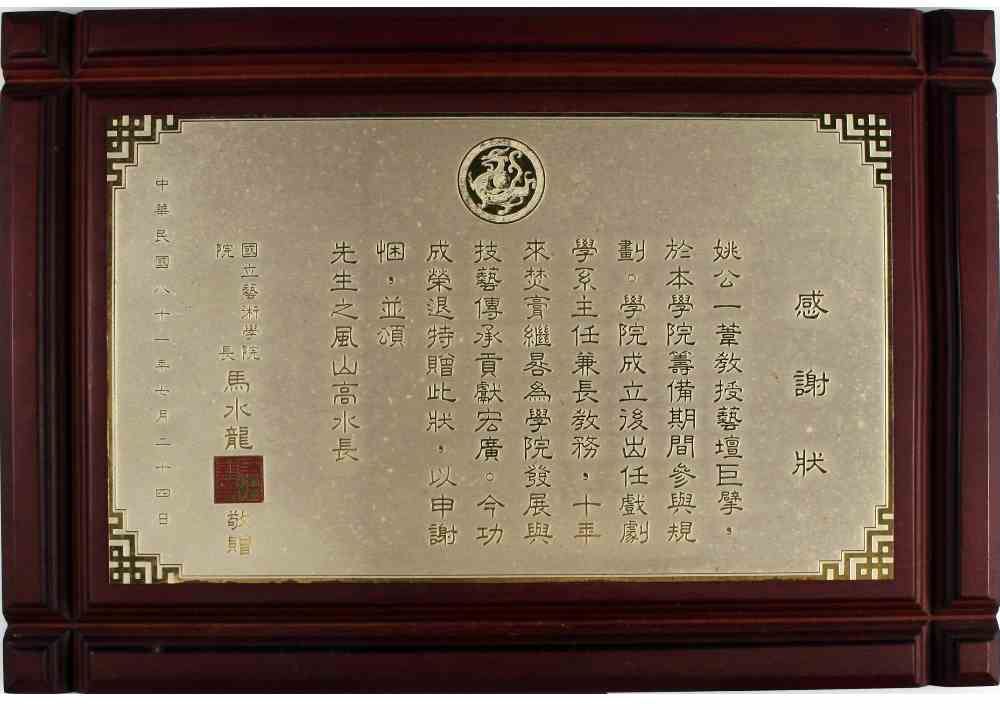 感謝狀
姚公一葦教授藝壇巨擘，
於本學院籌備期間參與規
劃。學院成立後出任戲劇
學系主任兼長教務，十年
來焚膏繼晷為學院發展與
技藝傳承貢獻宏廣。今功
成榮退特贈此狀，以申謝
悃，並頌
先生之風山高水長
國立藝術學院
院長
馬水龍
敬贈
中華民國八十一年七月二十四日